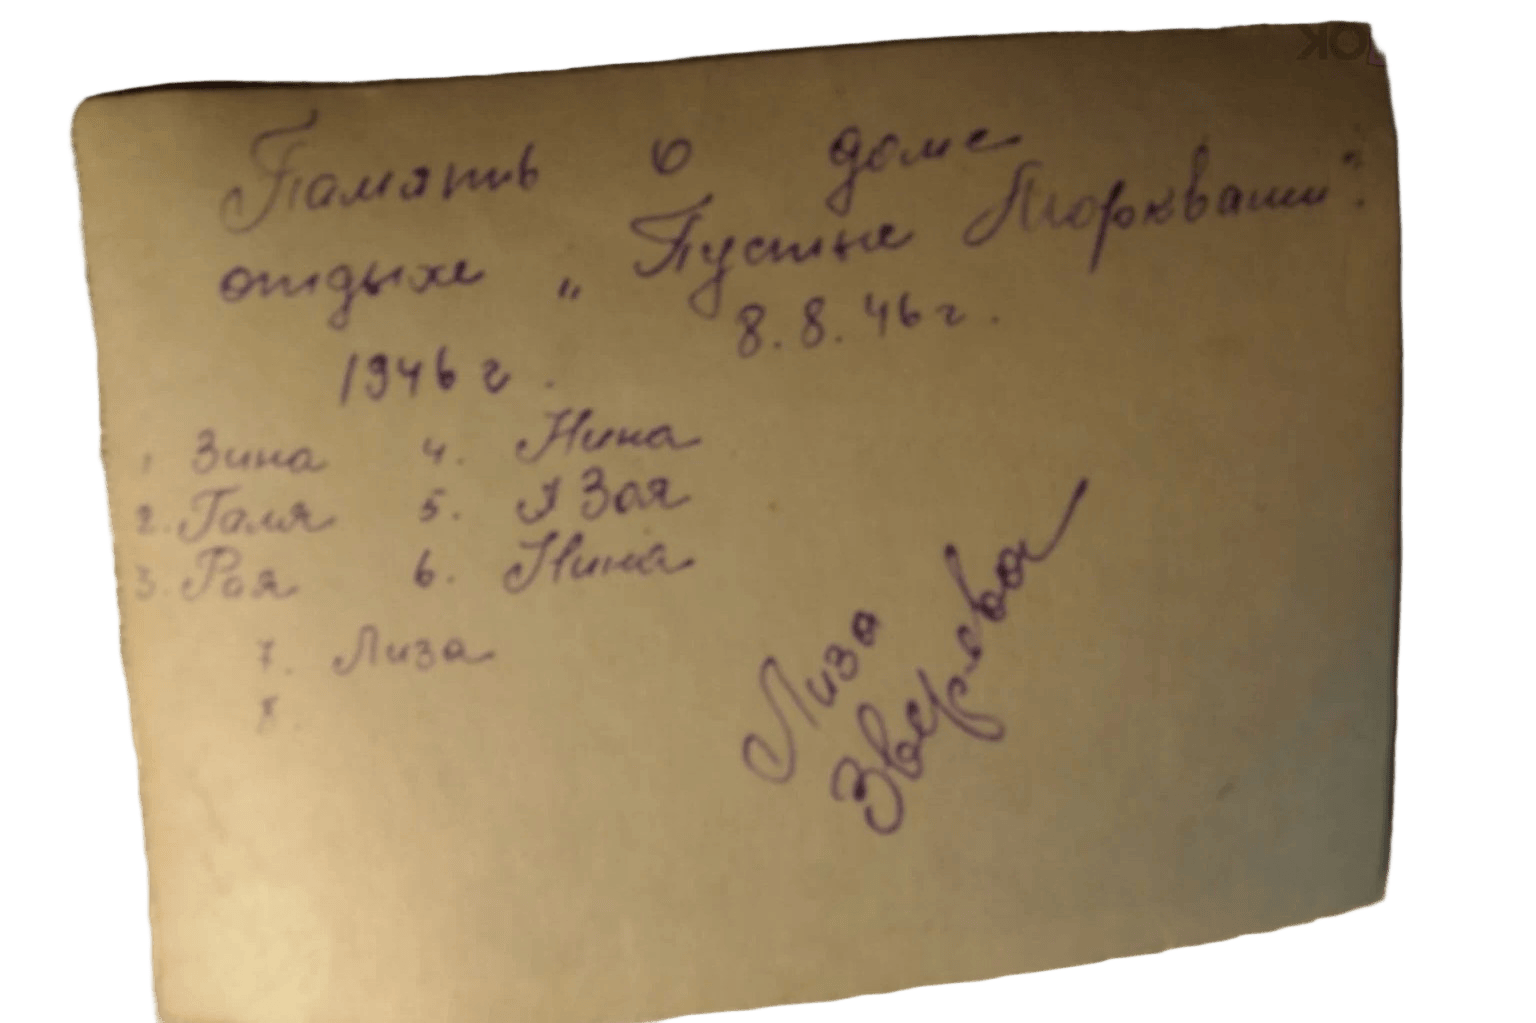 Память о доме
отдыха „Пустые Моркваши".
8.8.46 г.
1946 г.
1 Зина 4. Нина
2. Галя 5. Я Зоя
3. Рая 6. Нина
7. Лиза
8.
Лиза
Зверева